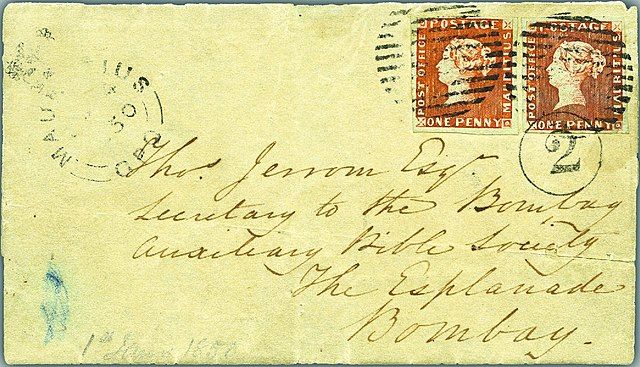 MAURITIUS
GPO
POSTAGE
POST OFFICE
MAURITIUS
ONE PENNY
POSTAGE
POST OFFICE
MAURITIUS
ONE PENNY
2
Thos Jerrom Esqr
Secretary to the Bombay
Auxiliary Bible Society
The Esplanade
Bombay.